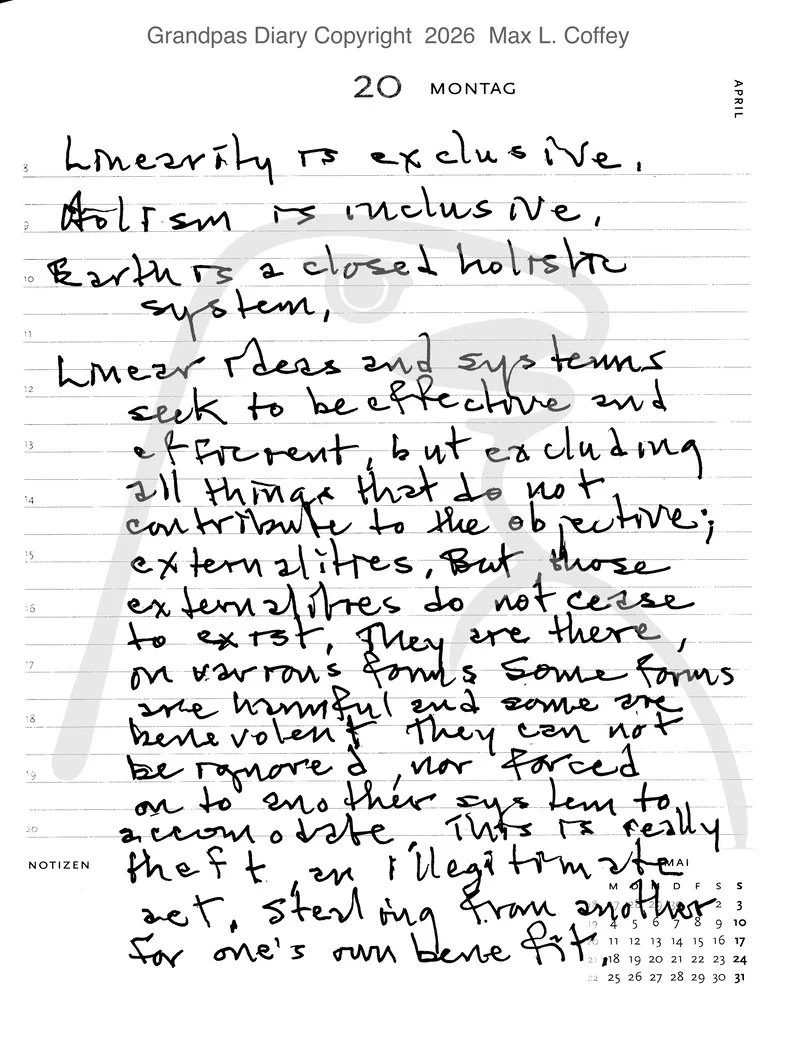 Grandpas Diary Copyright 2026 Max L. Coffey
20 MONTAG
APRIL
Linearity is exclusive.
Holism is inclusive.
Earth is a closed holistic
system.
Linear ideas and systems
seek to be effective and
efficient, but excluding
all things that do not
contribute to the objective;
externalities. But those
externalities do not cease
to exist. They are there,
on various forms. Some forms
are harmful and some are
benevolent. They can not
be ignored, nor forced
on to another system to
accomodate. This is really
theft, an illegitimate
act, stealing from another
for one's own benefit.
8
9
10
11
12
13
14
15
16
17
18
19
20
NOTIZEN
MAI
M D M D F S S
2 3
4 5 6 7 8 9 10
11 12 13 14 15 16 17
21 18 19 20 21 22 23 24
22 25 26 27 28 29 30 31